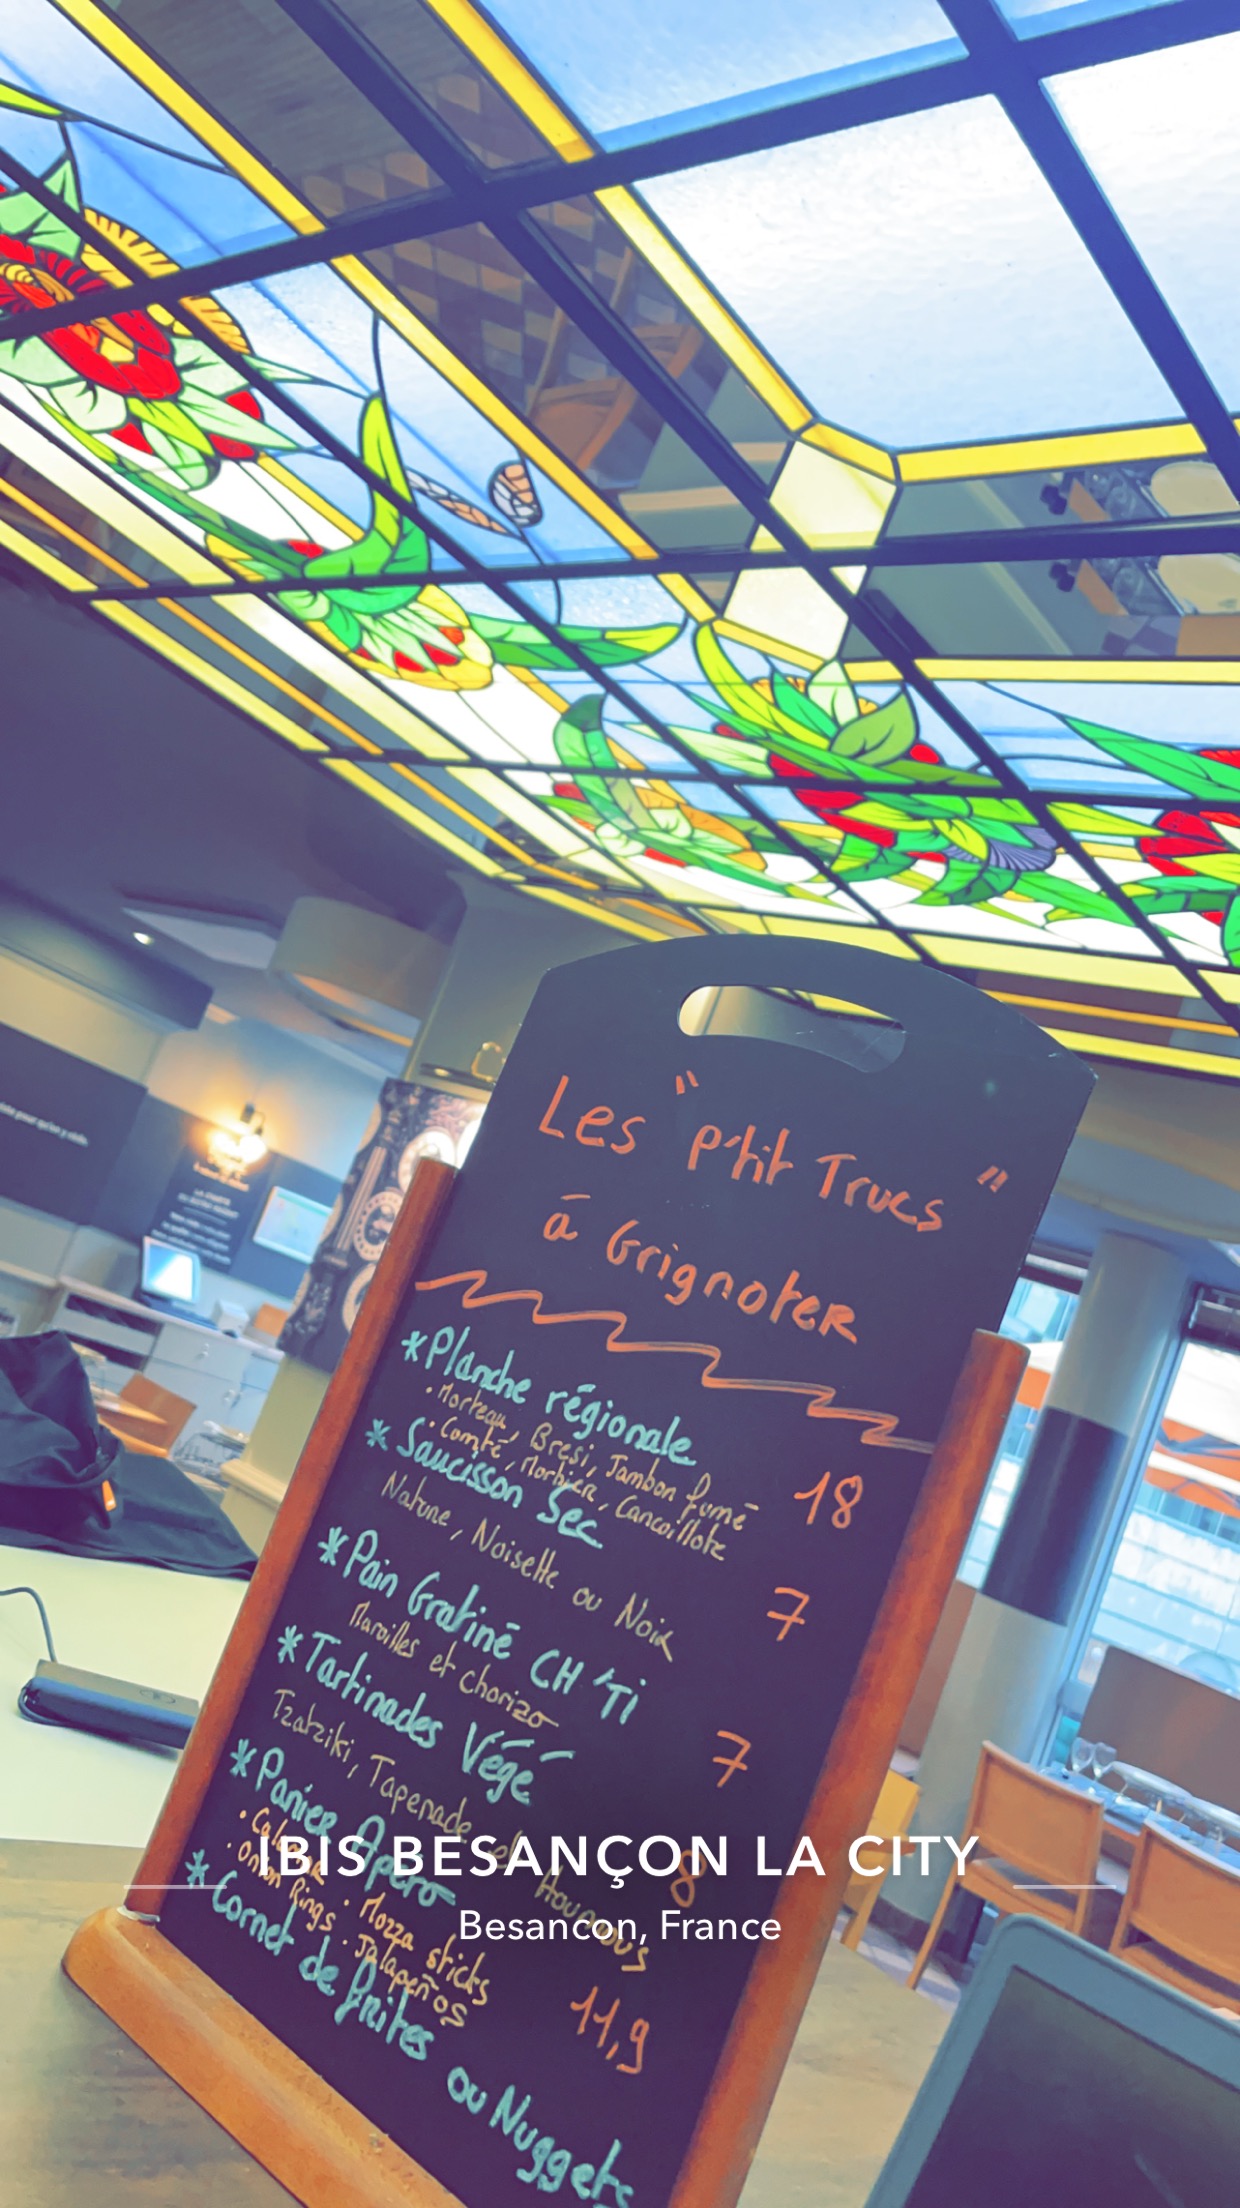 Les "P'tit Trucs"
à Grignoter
*Planche régionale
• Morteau, Bresi, Jambon fumé
• Comté, Morbier, Cancoillote
18
*Saucisson Sec
Nature, Noisette ou Noix
7
*Pain Gratiné CH'Ti
Maroilles et chorizo
7
*Tartinades Végé
Tzatziki, Tapenade et Houmous
8
*Panier Apéro
• Calamar • Mozza sticks
• Onion Rings • Jalapeños
11,9
*Cornet de frites ou Nuggets
IBIS BESANÇON LA CITY
Besancon, France